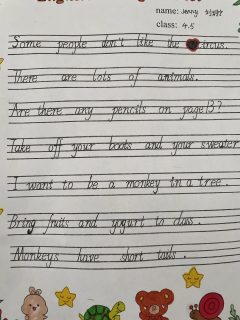 name: Jenny
class: 4.5
Some people don't like the circus.
There are lots of animals.
Are there any pencils on page13?
Take off your boots and your sweater
I want to be a monkey in a tree.
Bring fruits and yogurt to class.
Monkeys have short tails.